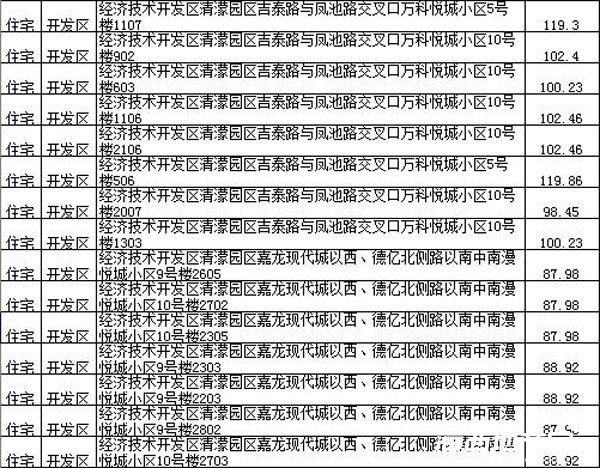 经济技术开发区清濛园区吉泰路与凤池路交叉口万科悦城小区5号
住宅 开发区 楼1107 119.3
经济技术开发区清濛园区吉泰路与凤池路交叉口万科悦城小区10号
住宅 开发区 楼902 102.4
经济技术开发区清濛园区吉泰路与凤池路交叉口万科悦城小区10号
住宅 开发区 楼603 100.23
经济技术开发区清濛园区吉泰路与凤池路交叉口万科悦城小区10号
住宅 开发区 楼1106 102.46
经济技术开发区清濛园区吉泰路与凤池路交叉口万科悦城小区10号
住宅 开发区 楼2106 102.46
经济技术开发区清濛园区吉泰路与凤池路交叉口万科悦城小区5号
住宅 开发区 楼506 119.86
经济技术开发区清濛园区吉泰路与凤池路交叉口万科悦城小区10号
住宅 开发区 楼2007 98.45
经济技术开发区清濛园区吉泰路与凤池路交叉口万科悦城小区10号
住宅 开发区 楼1303 100.23
经济技术开发区清濛园区嘉龙现代城以西、德亿北侧路以南中南漫
住宅 开发区 悦城小区9号楼2605 87.98
经济技术开发区清濛园区嘉龙现代城以西、德亿北侧路以南中南漫
住宅 开发区 悦城小区10号楼2702 87.98
经济技术开发区清濛园区嘉龙现代城以西、德亿北侧路以南中南漫
住宅 开发区 悦城小区10号楼2305 87.98
经济技术开发区清濛园区嘉龙现代城以西、德亿北侧路以南中南漫
住宅 开发区 悦城小区9号楼2303 88.92
经济技术开发区清濛园区嘉龙现代城以西、德亿北侧路以南中南漫
住宅 开发区 悦城小区9号楼2203 88.92
经济技术开发区清濛园区嘉龙现代城以西、德亿北侧路以南中南漫
住宅 开发区 悦城小区9号楼2802
经济技术开发区清濛园区嘉龙现代城以西、德亿北侧路以南中南漫
住宅 开发区 悦城小区10号楼2703 88.92